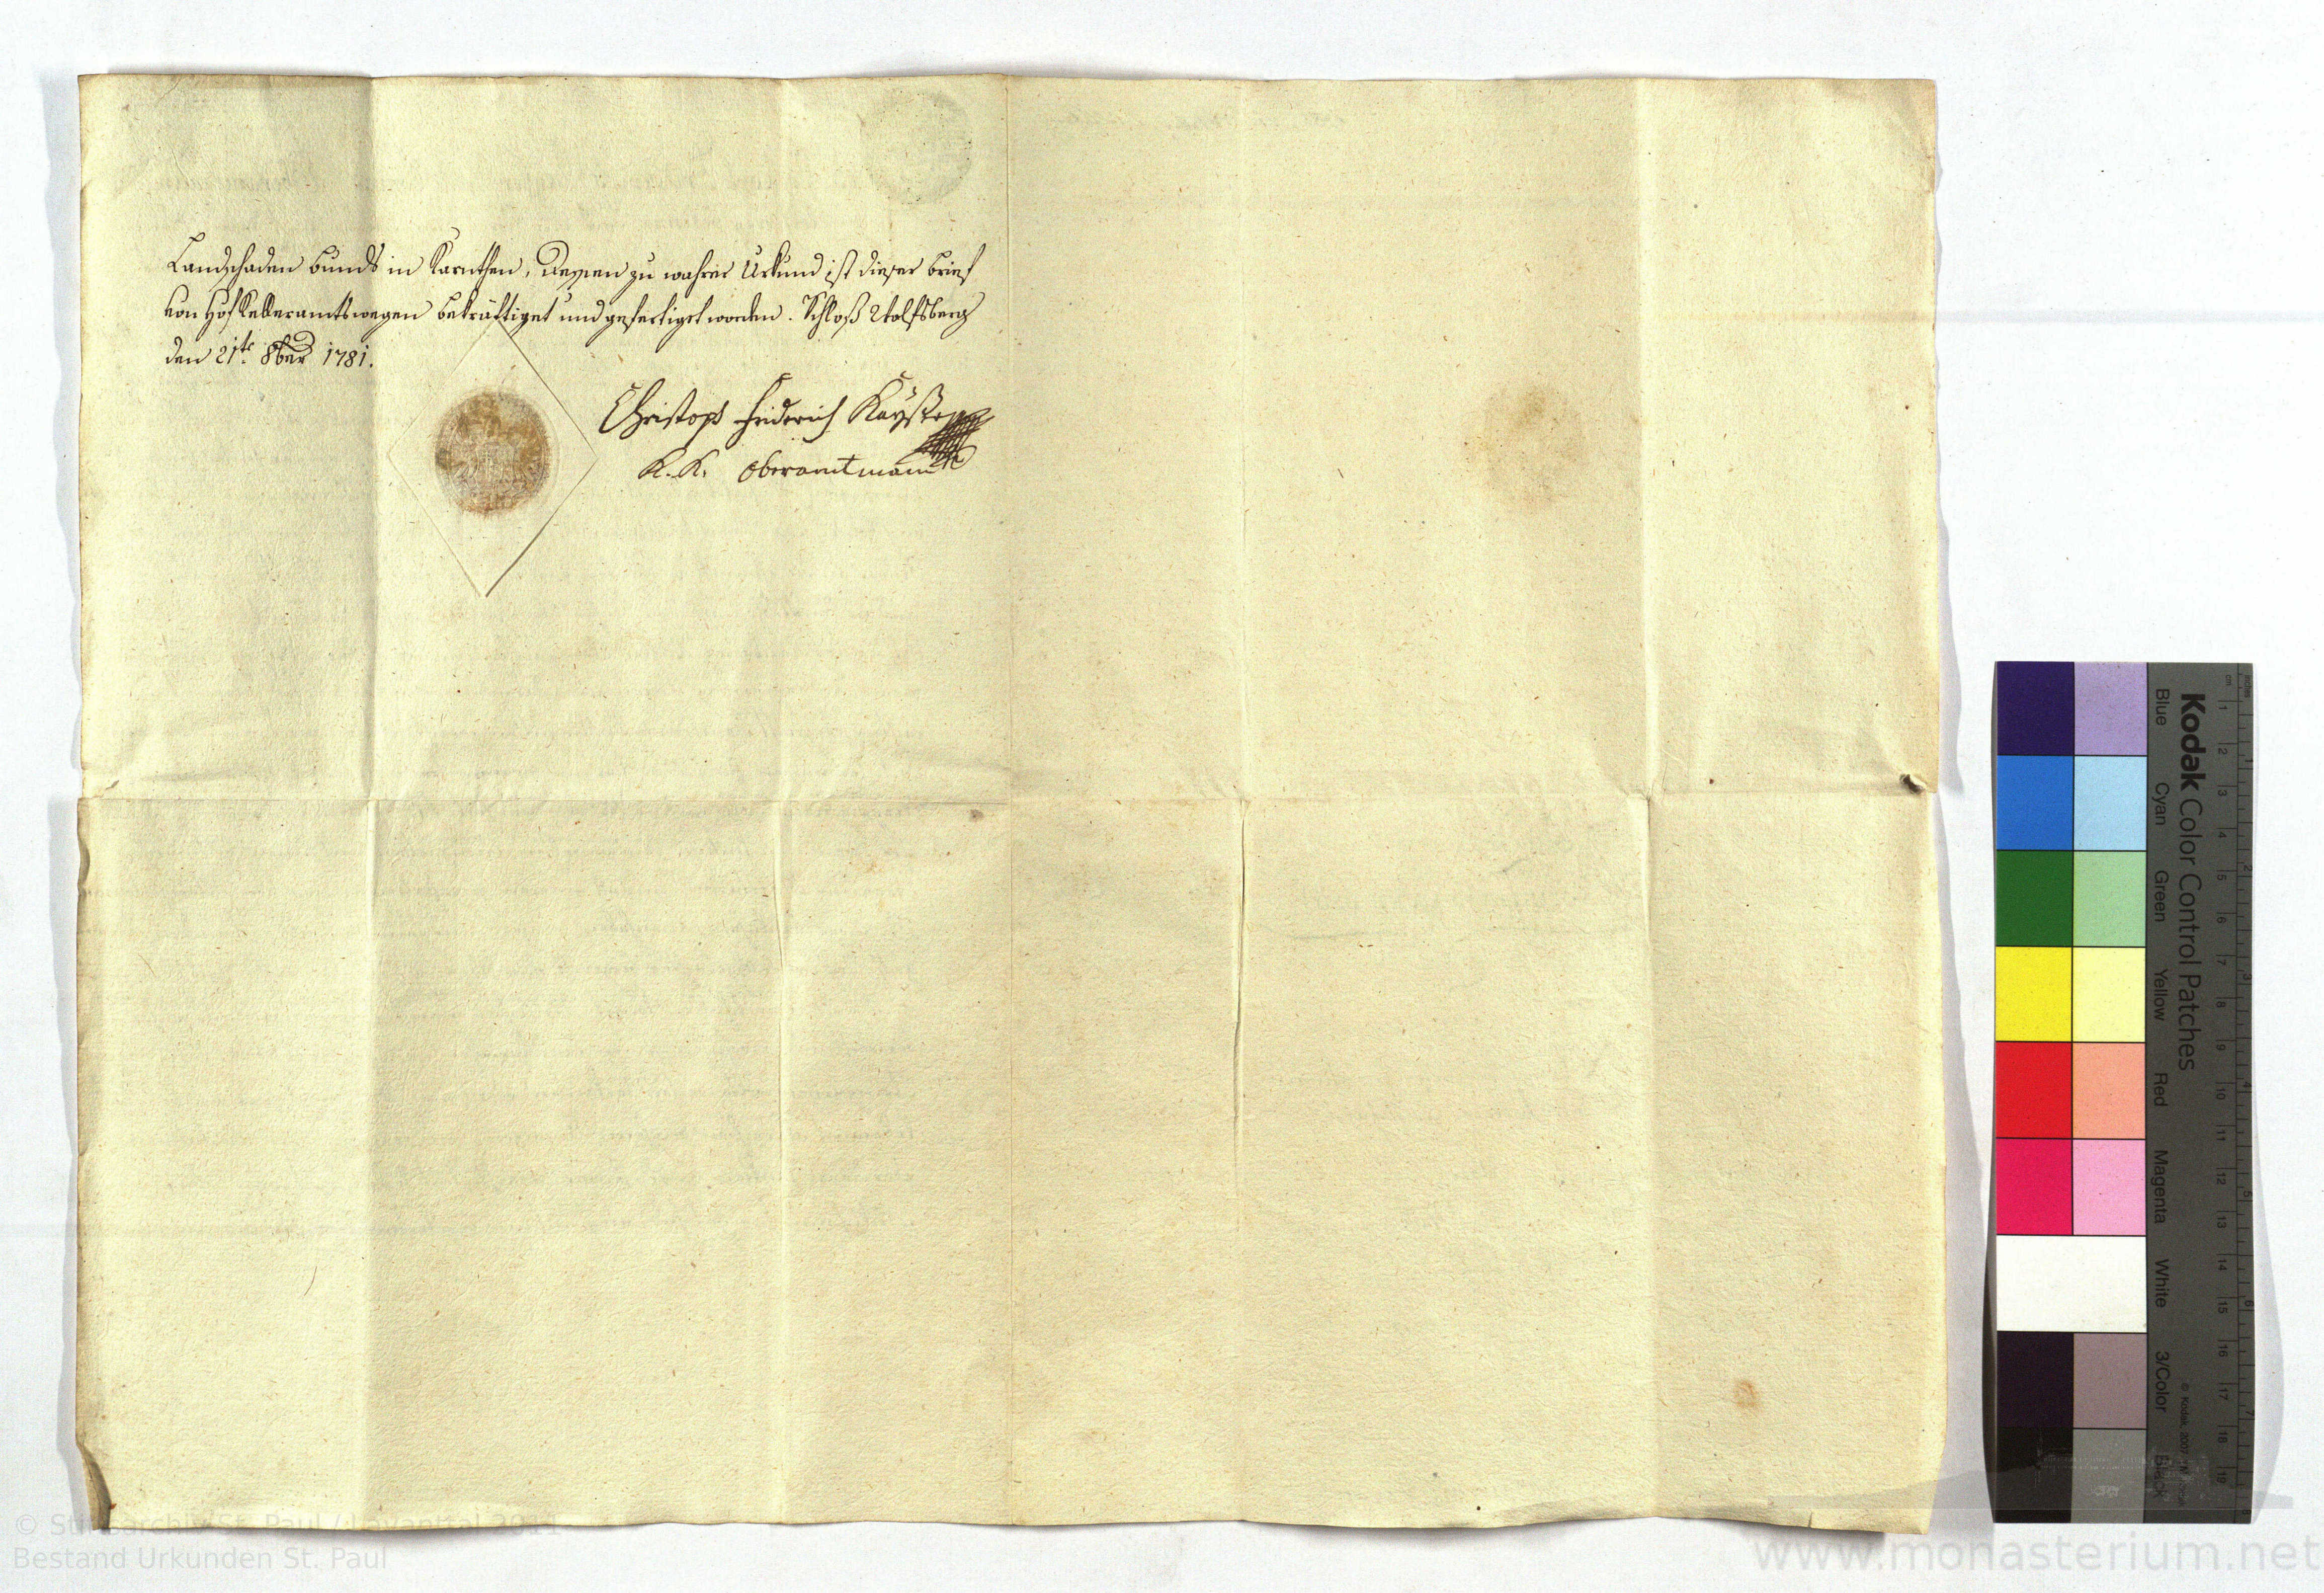 Landschaden bunds in Karnthen, dessen zu wahrer Urkund ist dieser brief
von Hof Kelleramts wegen bekräftiget und gefertiget worden. Schloß Wolfsberg
den 21te 8ber 1781.
Christoph Friderich Kayser
K. K. Oberamtmann
Kodak Color Control Patches
Blue Cyan Green Yellow Red Magenta White 3/Color Black
© Kodak, 2007
cm 1 2 3 4 5 6 7 8 9 10 11 12 13 14 15 16 17 18 19
inches 1 2 3 4 5 6 7
© Stiftsarchiv St. Paul / Lavanttal 2011
Bestand Urkunden St. Paul
www.monasterium.net